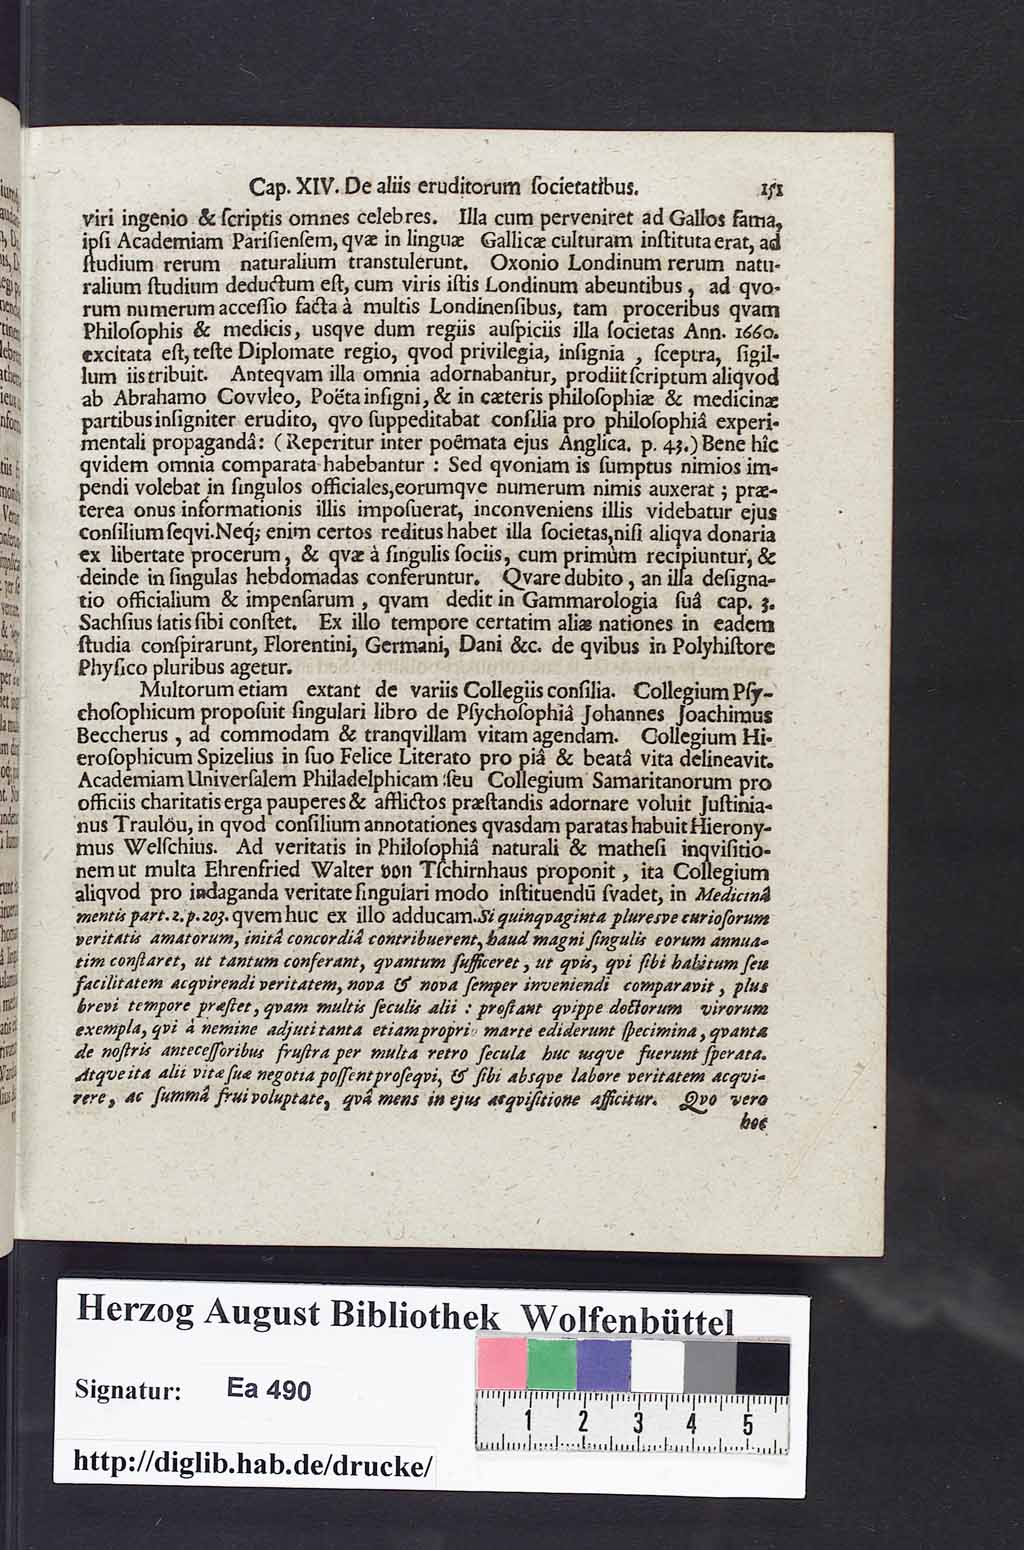 Cap. XIV. De aliis eruditorum ſocietatibus. 151
viri ingenio & ſcriptis omnes celebres. Illa cum perveniret ad Gallos fama,
ipſi Academiam Pariſienſem, qvæ in linguæ Gallicæ culturam inſtituta erat, ad
ſtudium rerum naturalium transtulerunt. Oxonio Londinum rerum natu-
ralium ſtudium deductum eſt, cum viris iſtis Londinum abeuntibus, ad qvo-
rum numerum acceſſio facta à multis Londinenſibus, tam proceribus qvam
Philoſophis & medicis, usqve dum regiis auſpiciis illa ſocietas Ann. 1660.
excitata eſt, teſte Diplomate regio, qvod privilegia, inſignia, ſceptra, ſigil-
lum iis tribuit. Anteqvam illa omnia adornabantur, prodiit ſcriptum aliqvod
ab Abrahamo Covvleo, Poëta inſigni, & in cæteris philoſophiæ & medicinæ
partibus inſigniter erudito, qvo ſuppeditabat conſilia pro philoſophiâ experi-
mentali propagandâ: (Reperitur inter poëmata ejus Anglica. p. 43.) Bene hîc
qvidem omnia comparata habebantur : Sed qvoniam is ſumptus nimios im-
pendi volebat in ſingulos officiales, eorumqve numerum nimis auxerat ; præ-
terea onus informationis illis impoſuerat, inconveniens illis videbatur ejus
conſilium ſeqvi. Neq; enim certos reditus habet illa ſocietas, niſi aliqva donaria
ex libertate procerum, & qvæ à ſingulis ſociis, cum primùm recipiuntur, &
deinde in ſingulas hebdomadas conferuntur. Qvare dubito, an illa deſigna-
tio officialium & impenſarum, qvam dedit in Gammarologia ſuâ cap. 3.
Sachſius ſatis ſibi conſtet. Ex illo tempore certatim aliæ nationes in eadem
ſtudia conſpirarunt, Florentini, Germani, Dani &c. de qvibus in Polyhiſtore
Phyſico pluribus agetur.
Multorum etiam extant de variis Collegiis conſilia. Collegium Pſy-
choſophicum propoſuit ſingulari libro de Pſychoſophiâ Johannes Joachimus
Beccherus, ad commodam & tranqvillam vitam agendam. Collegium Hi-
eroſophicum Spizelius in ſuo Felice Literato pro piâ & beatâ vita delineavit.
Academiam Univerſalem Philadelphicam ſeu Collegium Samaritanorum pro
officiis charitatis erga pauperes & afflictos præſtandis adornare voluit Juſtinia-
nus Traulöu, in qvod conſilium annotationes qvasdam paratas habuit Hierony-
mus Welſchius. Ad veritatis in Philoſophiâ naturali & matheſi inqviſitio-
nem ut multa Ehrenfried Walter von Tſchirnhaus proponit, ita Collegium
aliqvod pro indaganda veritate ſingulari modo inſtituendū ſvadet, in Medicinâ
mentis part. 2. p. 203. qvem huc ex illo adducam. Si quinqvaginta plureſve curioſorum
veritatis amatorum, initâ concordiâ contribuerent, haud magni ſingulis eorum annua-
tim conſtaret, ut tantum conferant, qvantum ſufficeret, ut qvis, qvi ſibi habitum ſeu
facilitatem acqvirendi veritatem, nova & nova ſemper inveniendi comparavit, plus
brevi tempore præſtet, qvam multis ſeculis alii : proſtant qvippe doctorum virorum
exempla, qvi à nemine adjuti tanta etiam proprio marte ediderunt ſpecimina, qvanta
de noſtris anteceſſoribus fruſtra per multa retro ſecula huc usqve fuerunt ſperata.
Atqve ita alii vitæ ſuæ negotia poſſent proſeqvi, & ſibi absqve labore veritatem acqvi-
rere, ac ſummâ frui voluptate, qvâ mens in ejus acqviſitione afficitur. Qvo vero
hoc
Herzog August Bibliothek Wolfenbüttel
Signatur: Ea 490
1 2 3 4 5
http://diglib.hab.de/drucke/